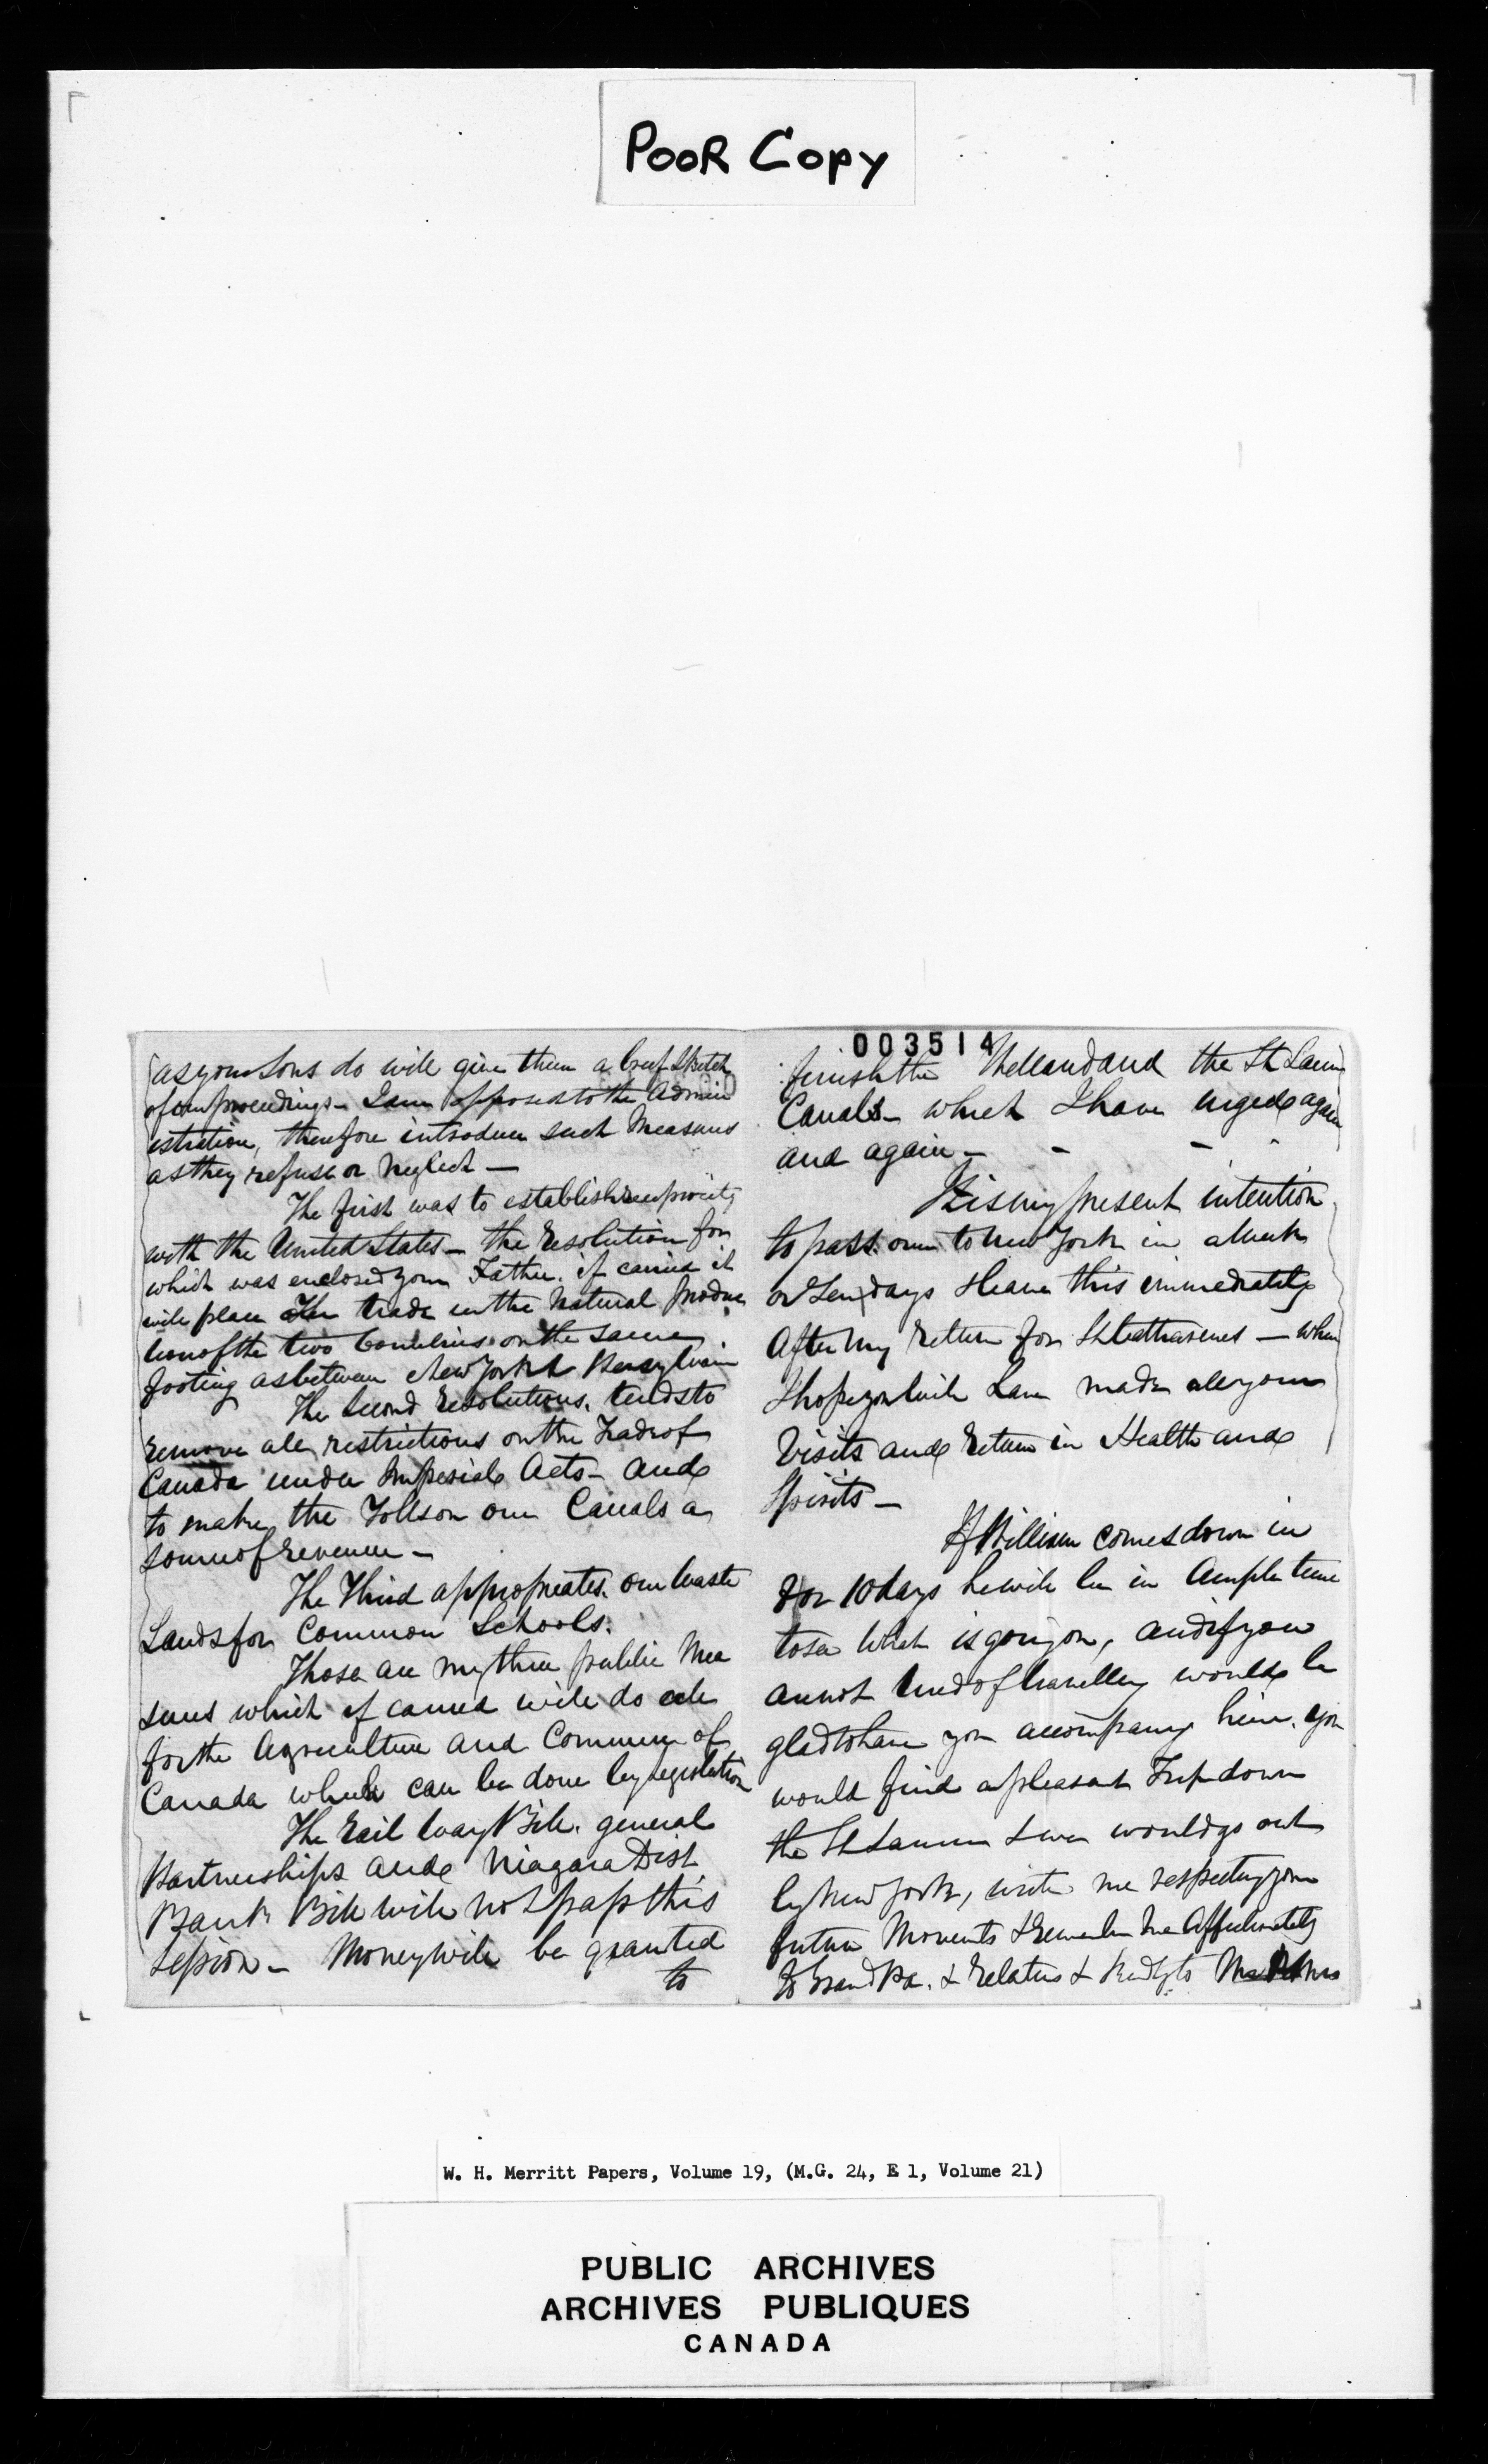 POOR COPY
as your Sons do will give them a brief Sketch
of our proceedings - I am opposed to the Admin
istration, therefore introduce such Measures
as they refuse or Neglect -
The first was to establish reciprocity
with the United States - the Resolution for
which was enclosed your Father. if carried it
will place the trade in the Natural produc
tion of the two Countries on the same
footing as between New York & Pensylvain
The Second Resolutions. tends to
remove all restrictions on the Trade of
Canada under Imperial Acts - and
to make the Tolls on our Canals a
source of revenue -
The Third appropriates. our Waste
Lands for Common Schools.
Those are my three public Mea
sures which if carried will do all
for the Agriculture and Commerce of
Canada which can be done by legislation
The Rail Way Bill. general
Partnerships and Niagara Dist
Bank Bill will not pass this
Session - Money will be granted
to
003514
finish the Welland and the St Lawr
Canals - which I have urged again
and again - - - -
It is my present intention
to pass over to New York in a Week
or ten days & leave this immediately
After my return for St Catharines - When
I hope you will have made all your
Visits and return in Health and
Spirits -
If William comes down in
8 or 10 days he will be in Ample time
to see What is going on, and if you
are not tired of travelling would be
glad to have you accompany him. you
would find a pleasant Trip down
the St Lawrence & we would go out
by New York, write me respecting your
future Movements & remember me Affectionately
to Grand Pa. & Relatives & to Mrs
W. H. Merritt Papers, Volume 19, (M.G. 24, E 1, Volume 21)
PUBLIC ARCHIVES
ARCHIVES PUBLIQUES
CANADA